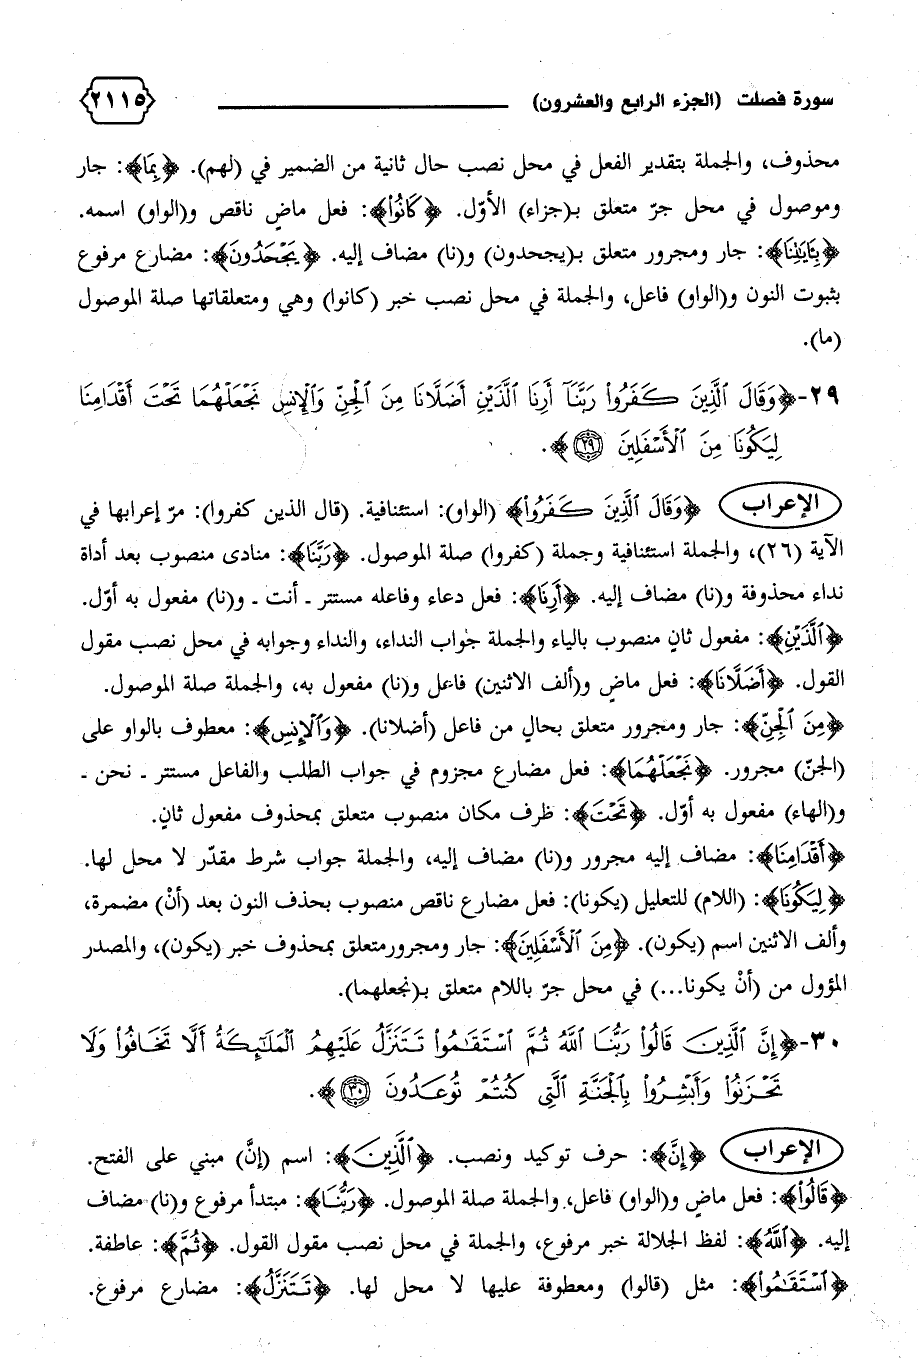 سورة فصلت (الجزء الرابع والعشرون) ٢١١٥
محذوف، والجملة بتقدير الفعل في محل نصب حال ثانية من الضمير في (لهم). ﴿بِمَا﴾: جار
وموصول في محل جرّ متعلق بـ(جزاء) الأوّل. ﴿كَانُوا۟﴾: فعل ماضٍ ناقص و(الواو) اسمه.
﴿بِـَٔايَـٰتِنَا﴾: جار ومجرور متعلق بـ(يجحدون) و(نا) مضاف إليه. ﴿يَجْحَدُونَ﴾: مضارع مرفوع
بثبوت النون و(الواو) فاعل، والجملة في محل نصب خبر (كانوا) وهي ومتعلقاتها صلة الموصول
(ما).
٢٩-﴿وَقَالَ ٱلَّذِينَ كَفَرُوا۟ رَبَّنَآ أَرِنَا ٱلَّذَيْنِ أَضَلَّانَا مِنَ ٱلْجِنِّ وَٱلْإِنسِ نَجْعَلْهُمَا تَحْتَ أَقْدَامِنَا
لِيَكُونَا مِنَ ٱلْأَسْفَلِينَ ۝٢٩﴾.
الإعراب ﴿وَقَالَ ٱلَّذِينَ كَفَرُوا۟﴾ (الواو): استئنافية. (قال الذين كفروا): مرّ إعرابها في
الآية (٢٦)، والجملة استئنافية وجملة (كفروا) صلة الموصول. ﴿رَبَّنَا﴾: منادى منصوب بعد أداة
نداء محذوفة و(نا) مضاف إليه. ﴿أَرِنَا﴾: فعل دعاء وفاعله مستتر ـ أنت ـ و(نا) مفعول به أوّل.
﴿ٱلَّذَيْنِ﴾: مفعول ثانٍ منصوب بالياء والجملة جواب النداء، والنداء وجوابه في محل نصب مقول
القول. ﴿أَضَلَّانَا﴾: فعل ماضٍ و(ألف الاثنين) فاعل و(نا) مفعول به، والجملة صلة الموصول.
﴿مِنَ ٱلْجِنِّ﴾: جار ومجرور متعلق بحالٍ من فاعل (أضلانا). ﴿وَٱلْإِنسِ﴾: معطوف بالواو على
(الجنّ) مجرور. ﴿نَجْعَلْهُمَا﴾: فعل مضارع مجزوم في جواب الطلب والفاعل مستتر ـ نحن ـ
و(الهاء) مفعول به أوّل. ﴿تَحْتَ﴾: ظرف مكان منصوب متعلق بمحذوف مفعول ثانٍ.
﴿أَقْدَامِنَا﴾: مضاف إليه مجرور و(نا) مضاف إليه، والجملة جواب شرط مقدّر لا محل لها.
﴿لِيَكُونَا﴾: (اللام) للتعليل (يكونا): فعل مضارع ناقص منصوب بحذف النون بعد (أنْ) مضمرة،
وألف الاثنين اسم (يكون). ﴿مِنَ ٱلْأَسْفَلِينَ﴾: جار ومجرورمتعلق بمحذوف خبر (يكون)، والمصدر
المؤول من (أنْ يكونا...) في محل جرّ باللام متعلق بـ(نجعلهما).
٣٠-﴿إِنَّ ٱلَّذِينَ قَالُوا۟ رَبُّنَا ٱللَّهُ ثُمَّ ٱسْتَقَـٰمُوا۟ تَتَنَزَّلُ عَلَيْهِمُ ٱلْمَلَـٰٓئِكَةُ أَلَّا تَخَافُوا۟ وَلَا
تَحْزَنُوا۟ وَأَبْشِرُوا۟ بِٱلْجَنَّةِ ٱلَّتِى كُنتُمْ تُوعَدُونَ ۝٣٠﴾.
الإعراب ﴿إِنَّ﴾: حرف توكيد ونصب. ﴿ٱلَّذِينَ﴾: اسم (إنَّ) مبني على الفتح.
﴿قَالُوا۟﴾: فعل ماضٍ و(الواو) فاعل، والجملة صلة الموصول. ﴿رَبُّنَا﴾: مبتدأ مرفوع و(نا) مضاف
إليه. ﴿ٱللَّهُ﴾: لفظ الجلالة خبر مرفوع، والجملة في محل نصب مقول القول. ﴿ثُمَّ﴾: عاطفة.
﴿ٱسْتَقَـٰمُوا۟﴾: مثل (قالوا) ومعطوفة عليها لا محل لها. ﴿تَتَنَزَّلُ﴾: مضارع مرفوع.